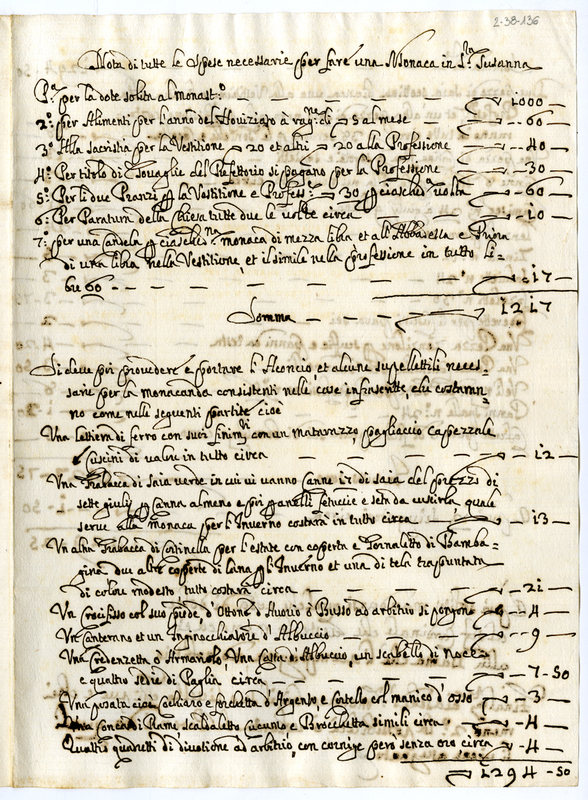 2-38-136
Nota di tutte le spese necessarie per fare una Monaca in S.ta Susanna
P.a per la dote solita al monast.o — — — — 1000
2.o per Alimenti per l'anno del Noviziato à rag.ne di 5 al mese — 60
3.o Alla sacristia per la Vestitione 20 et altri 20 alla Professione — 40
4.o Per titolo di Tovaglie del Refettorio si pagano per la Professione — 30
5.o Per li due Pranzi la Vestitione e Profess.e 30 ciasched.a volta — 60
6.o Per Paratura della Chiesa tutte due le volte circa — 10
7.o per una candela ciasched.na monaca di mezza libra et all'Abbadessa e Priora
di una libra nella Vestitione, et il simile nella professione in tutto li-
bre 60 — — — — 17
Somma — — — — 1217
Si deve poi provedere e portare l'Aconcio, et alcune supellettili neces-
sarie per la monacanda consistenti nelle cose infrascritte, che costaran-
no come nelle seguenti partite cioè
Una lettiera di ferro con suoi finim.ti con un matarazzo, pagliaccio capezzale
Cuscini di valui in tutto circa — — — 12
Una Trabacca di saia verde in cui vi vanno canne 17 di saia del prezzo di
sette giulij canna almeno e poi fettuccie e seta da cusirla, quale
serve alla monaca per l'Inverno costarà in tutto circa — 13
Un altra Trabacca di cortinella per l'estate con coperta e Tornaletto di Bamba-
gina due altre coperte di lana l'Inverno et una di tela trapuntata
di colore modesto, tutto costarà circa — — — 21
Un Crocifisso col suo piede, d'Ottone d'Avorio ò Busso ad arbitrio si pongono — 4
Un Canterano et un Inginocchiatore d'Albuccio — — — 9
Una Credenzetta ò Armariolo Una Cassa d'Albuccio, un scabello di Noce
e quattro sedie di Paglia circa — — — 7-50
Una posata cioè cochiaro e forchetta d'Argento, e cortello col manico d'osso — 3
Una Conca di Rame, scaldaletto Cucumo e Brocchetta simili circa — 4
Quattro quadretti di divotione ad arbitrio, con cornige però senza oro circa — 4
1294-50